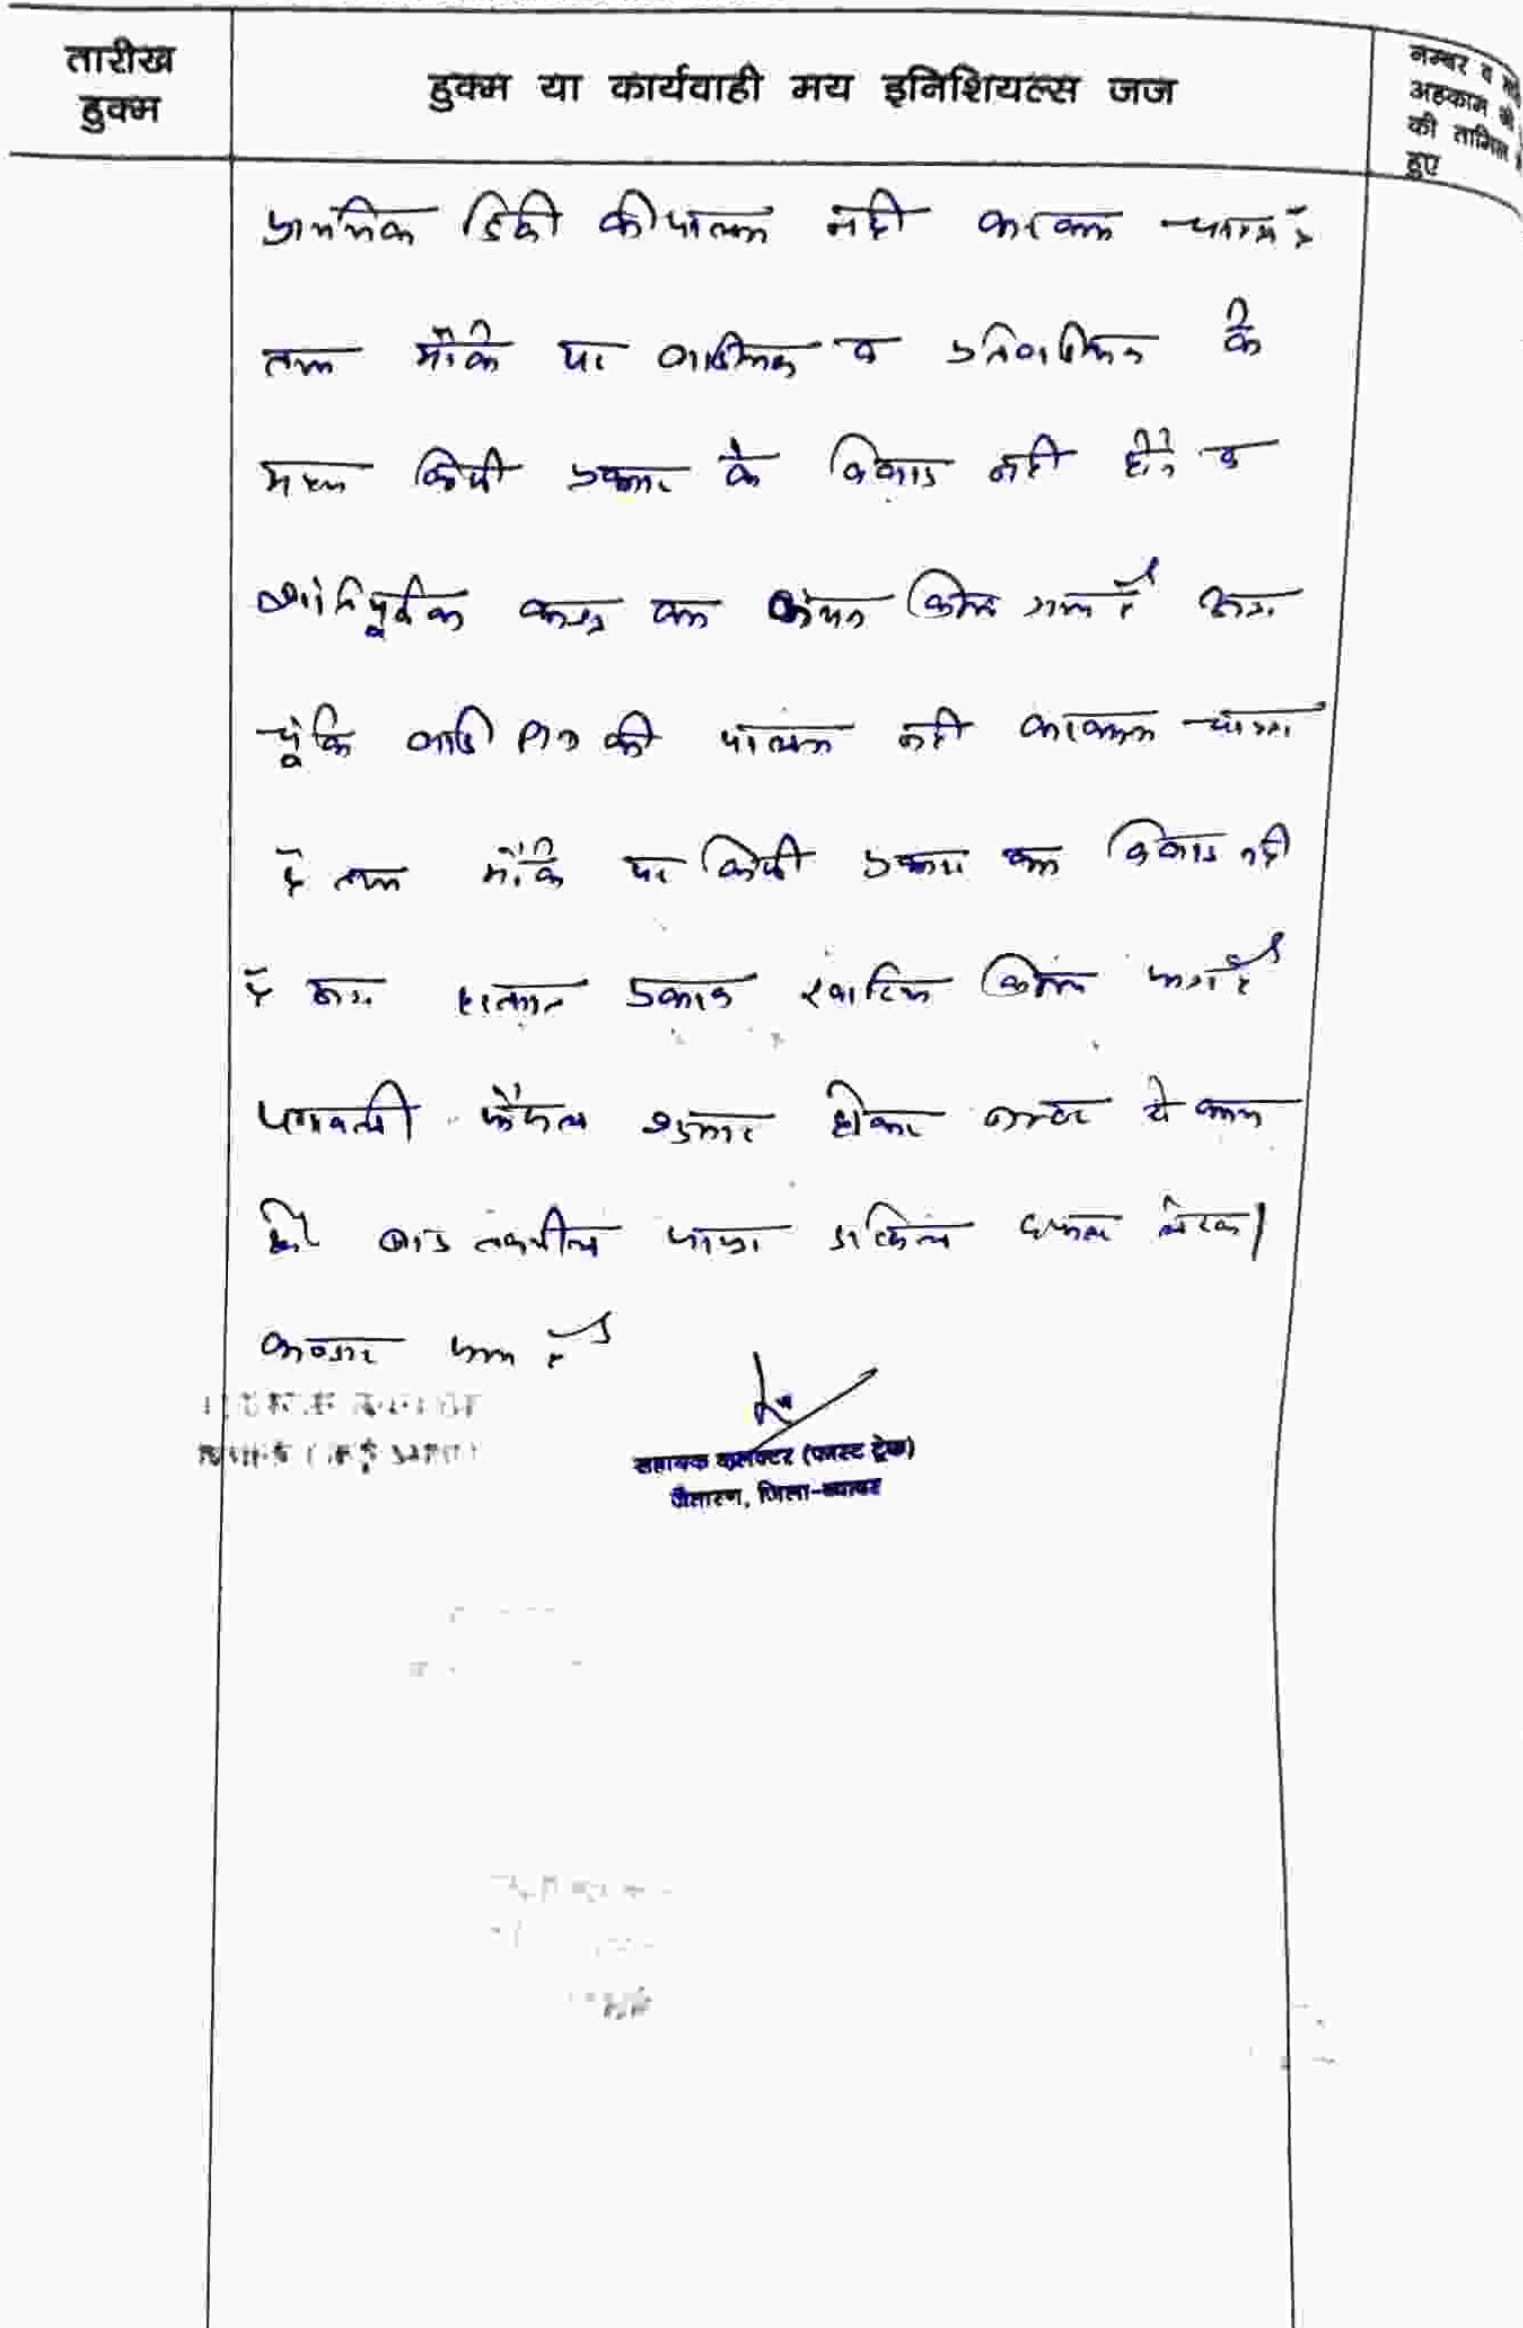 तारीख
हुक्म
हुक्म या कार्यवाही मय इनिशियल्स जज
नम्बर व
अहकाम
की तामिल
हुए
प्राथमिक डिक्री की पालना नही करवाना चाहते है
तथा मौके पर वादीगण व प्रतिवादीगण के
मध्य किसी प्रकार के विवाद नही होने व
शांतिपूर्वक कब्जा का कथन किया गया है अतः
चूंकि वादीगण की पालना नही करवाना चाहता
है तथा मौके पर किसी प्रकार का विवाद नही
है अतः हस्तगत प्रकरण खारिज किया जाता है
पत्रावली फैसल शुमार होकर नम्बर से कम
की बाद तकमील जाब्ता दाखिल दफ्तर
जाता है
सहायक कलक्टर (फास्ट ट्रेक)
जैतारण, जिला-ब्यावर